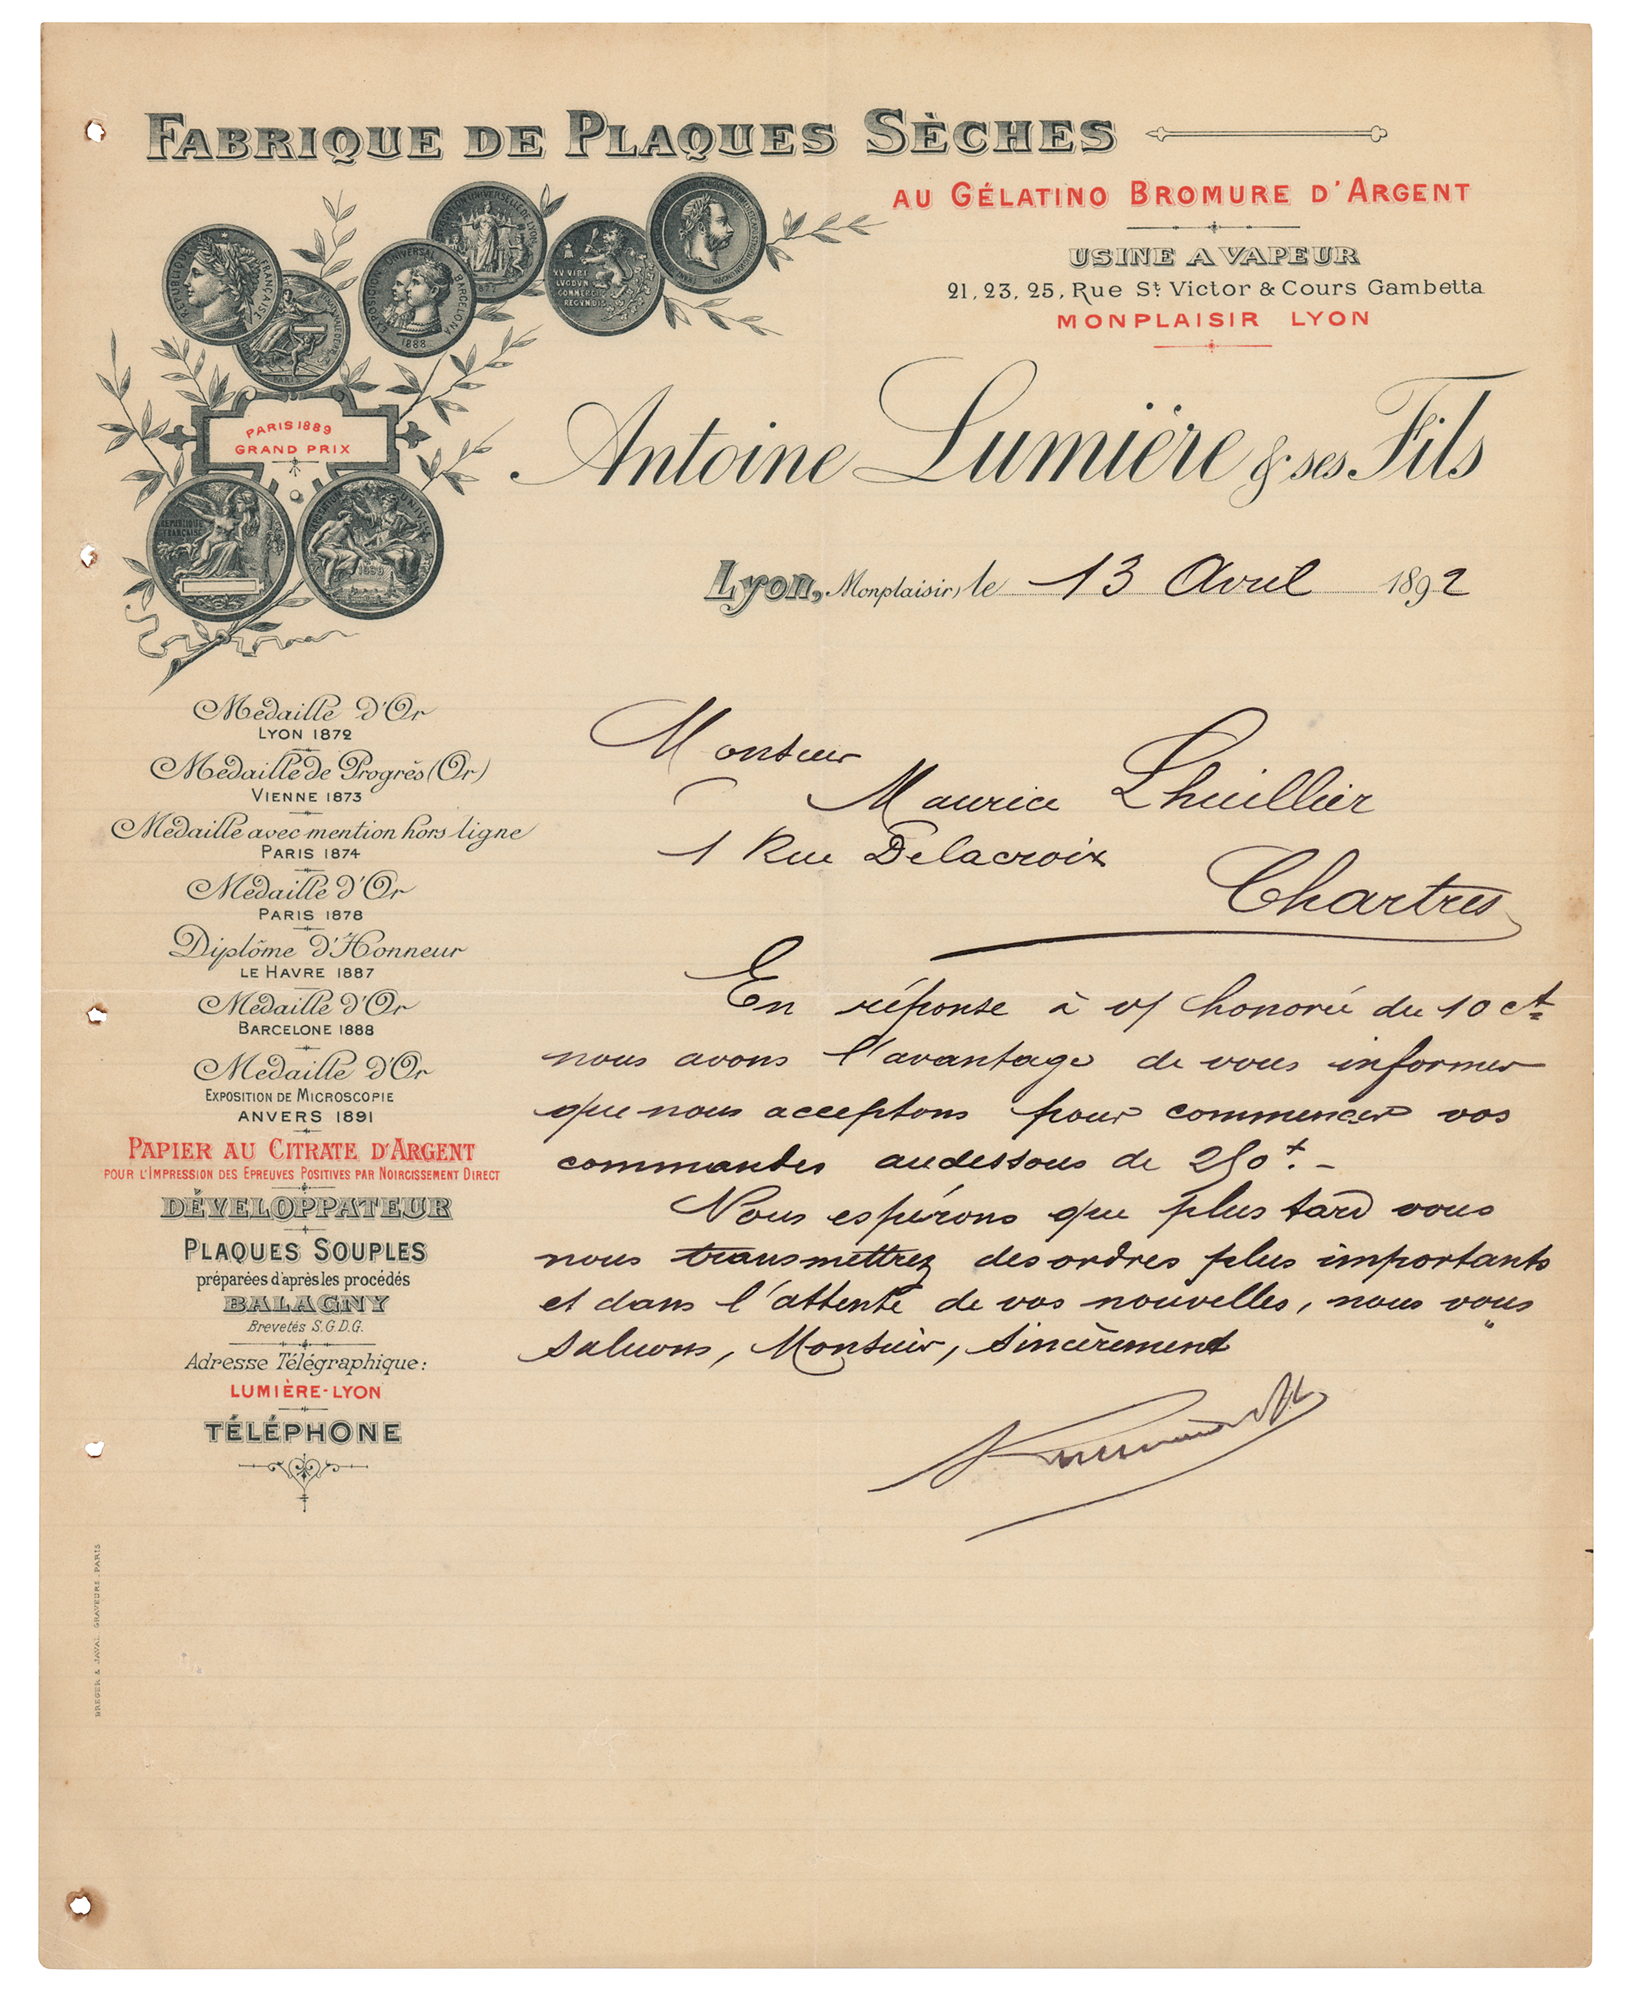 FABRIQUE DE PLAQUES SÈCHES
AU GÉLATINO BROMURE D'ARGENT
USINE A VAPEUR
21, 23, 25, Rue St. Victor & Cours Gambetta
MONPLAISIR LYON
RÉPUBLIQUE FRANÇAISE
EXPOSICION UNIVERSAL BARCELONA
1888
PARIS
XV VIRI
LVGDVN
COMMERCII
REGVNDIS
PARIS 1889
GRAND PRIX
REPUBLIQUE
FRANÇAISE
1889
Antoine Lumière & ses Fils
Lyon, Monplaisir, le 13 Avril 1892
Médaille d'Or
LYON 1872
Médaille de Progrès (Or)
VIENNE 1873
Médaille avec mention hors ligne
PARIS 1874
Médaille d'Or
PARIS 1878
Diplôme d'Honneur
LE HAVRE 1887
Médaille d'Or
BARCELONE 1888
Médaille d'Or
EXPOSITION DE MICROSCOPIE
ANVERS 1891
PAPIER AU CITRATE D'ARGENT
POUR L'IMPRESSION DES EPREUVES POSITIVES PAR NOIRCISSEMENT DIRECT
DÉVELOPPATEUR
PLAQUES SOUPLES
préparées d'après les procédés
BALAGNY
Brevetés S.G.D.G.
Adresse Télégraphique:
LUMIÈRE-LYON
TÉLÉPHONE
BREGER & JAVAL GRAVEURS_PARIS
Monsieur
Maurice Lhuillier
1 Rue Delacroix
Chartres
En réponse à v/ honorée du 10 ct
nous avons l'avantage de vous informer
que nous acceptons pour commencer vos
commandes audessous de 250f. -
Nous espérons que plus tard vous
nous transmettrez des ordres plus importants
et dans l'attente de vos nouvelles, nous vous
saluons, Monsieur, sincèrement